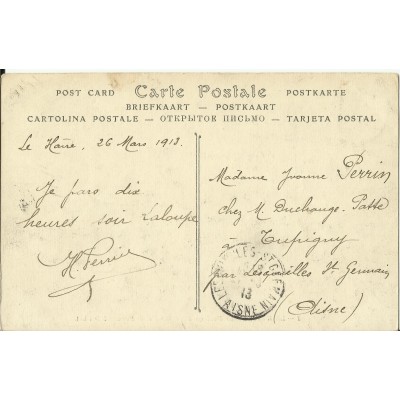 POST CARD Carte Postale POSTKARTE
BRIEFKAART — POSTKAART
CARTOLINA POSTALE — ОТКРЫТОЕ ПИСЬМО — TARJETA POSTAL
Le Hâvre, 26 Mars 1913.
Je pars dix
heures soir Laloupe
H. Perrin
Madame Yvonne Perrin
chez M. Duchauge-Patte
à Tupigny
par Lesquielles St Germain
(Aisne)
ST GERMAIN
13
AISNE